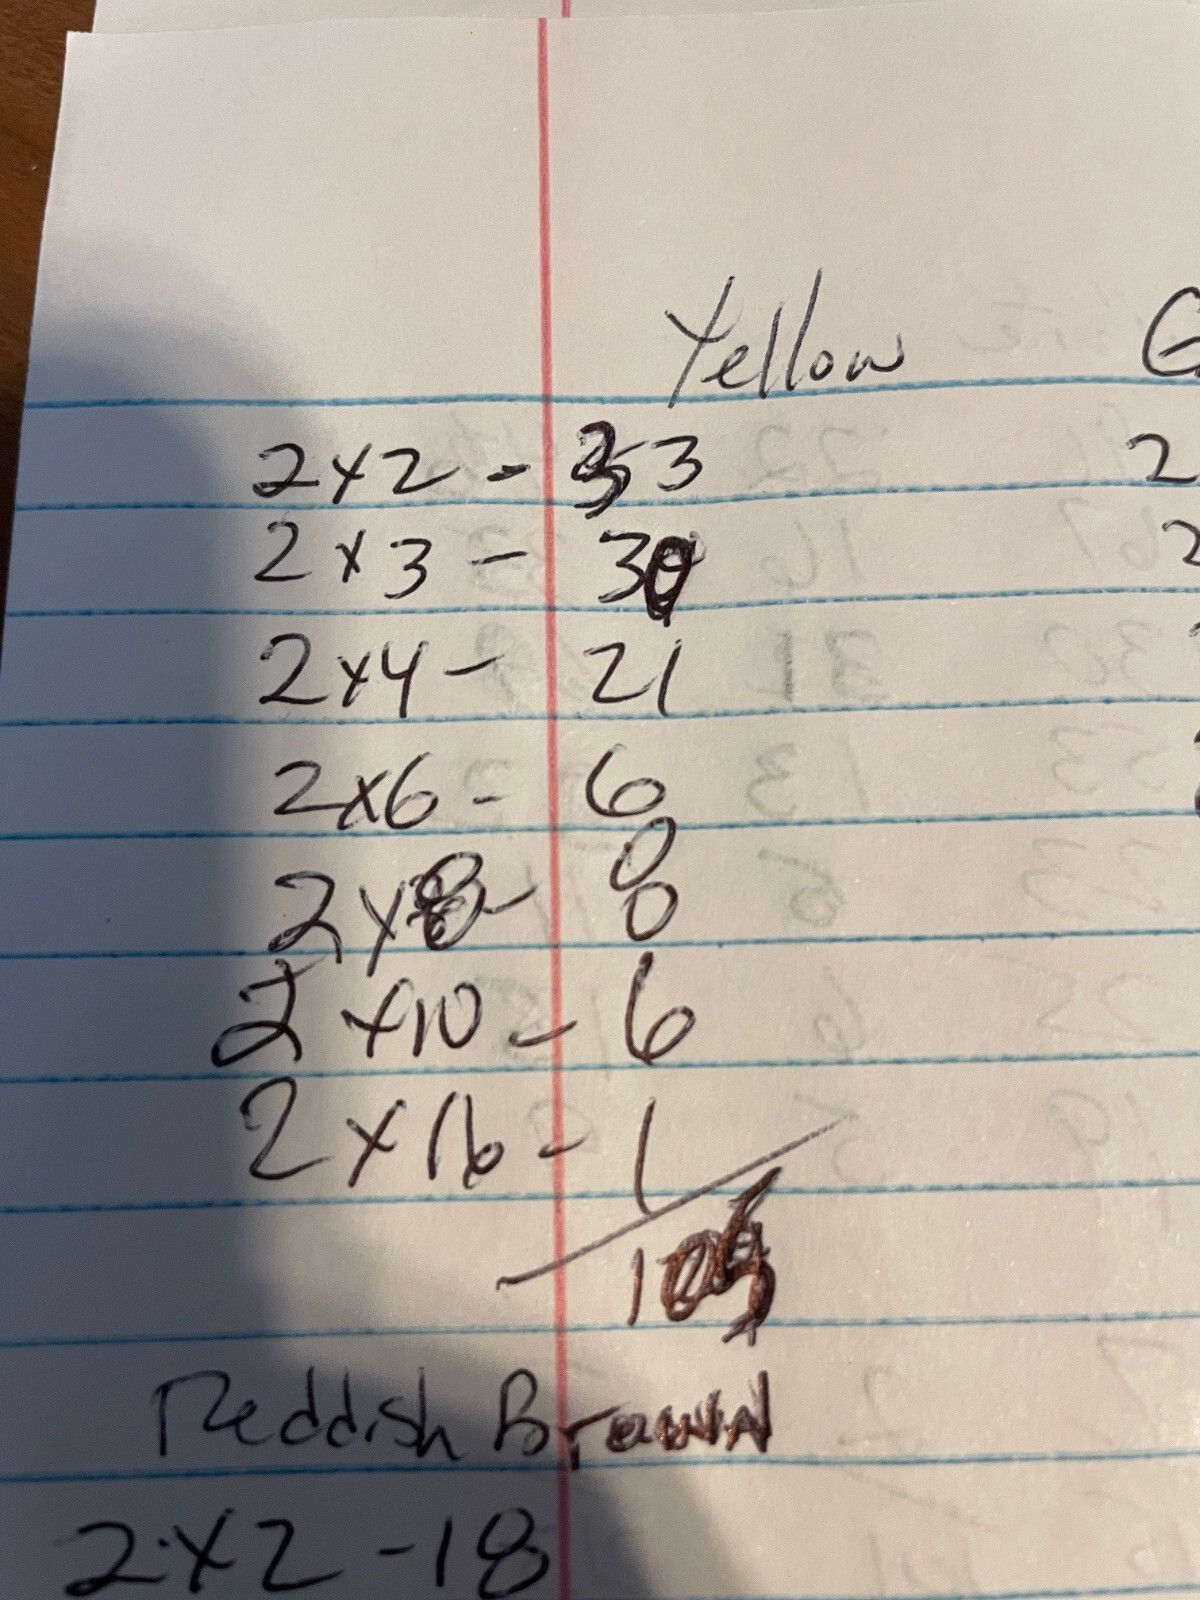 Yellow G
2x2 - 33 2
2x3 - 30 2
2x4 - 21
2x6 - 6
0
2x8 - 0
2x10 - 6
2x16 - 1
Reddish Brown
2x2 - 18